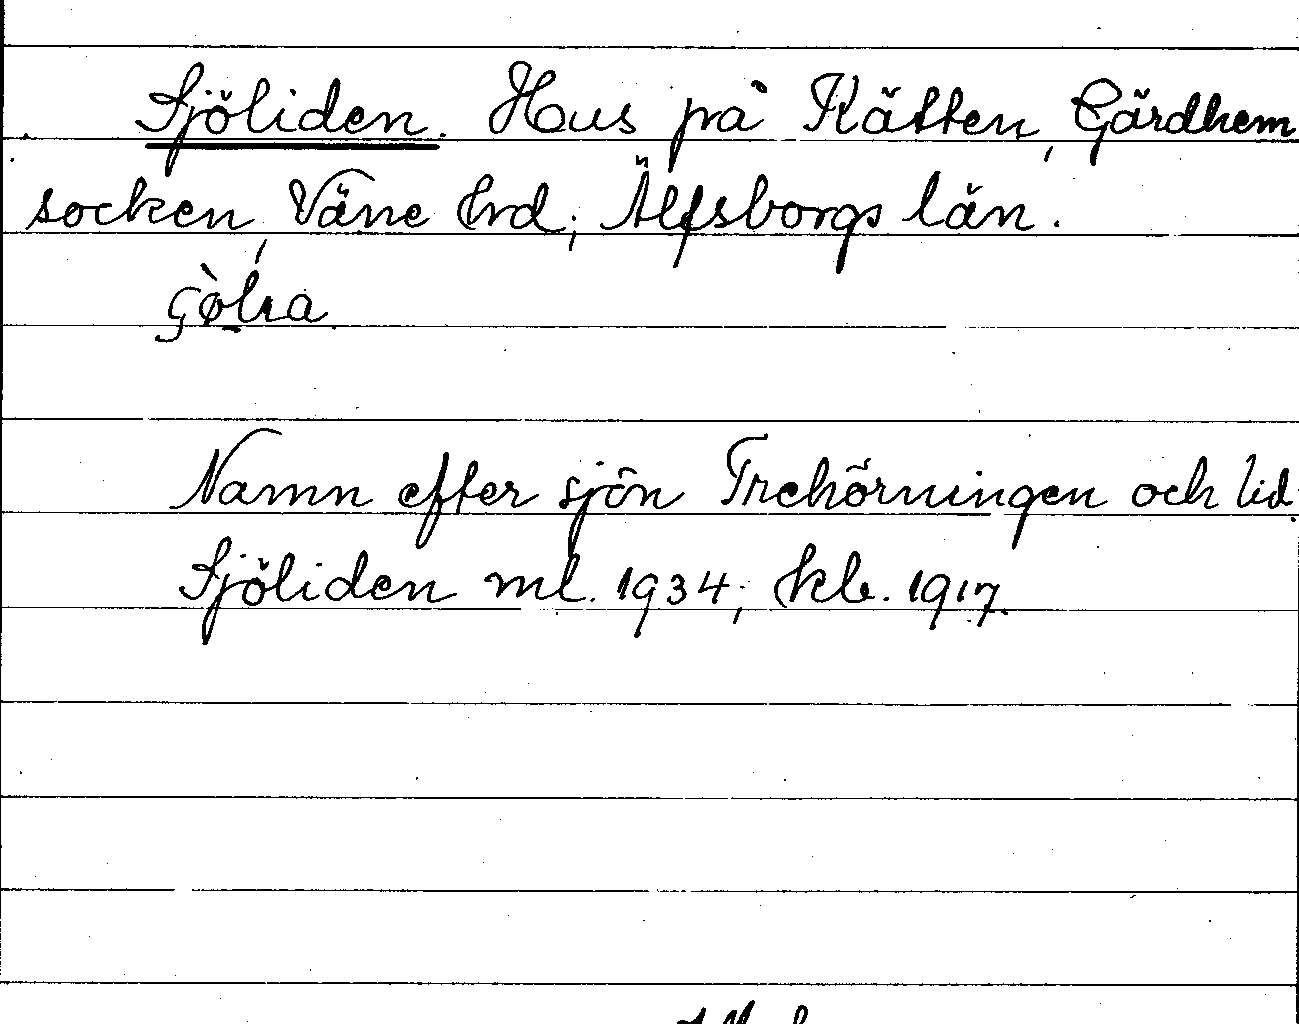 Sjöliden. Hus på Kätten, Gärdhem
socken, Väne hrd; Älfsborgs län.
Namn efter sjön Trehörningen och lid.
Sjöliden ml. 1934; kb. 1917.